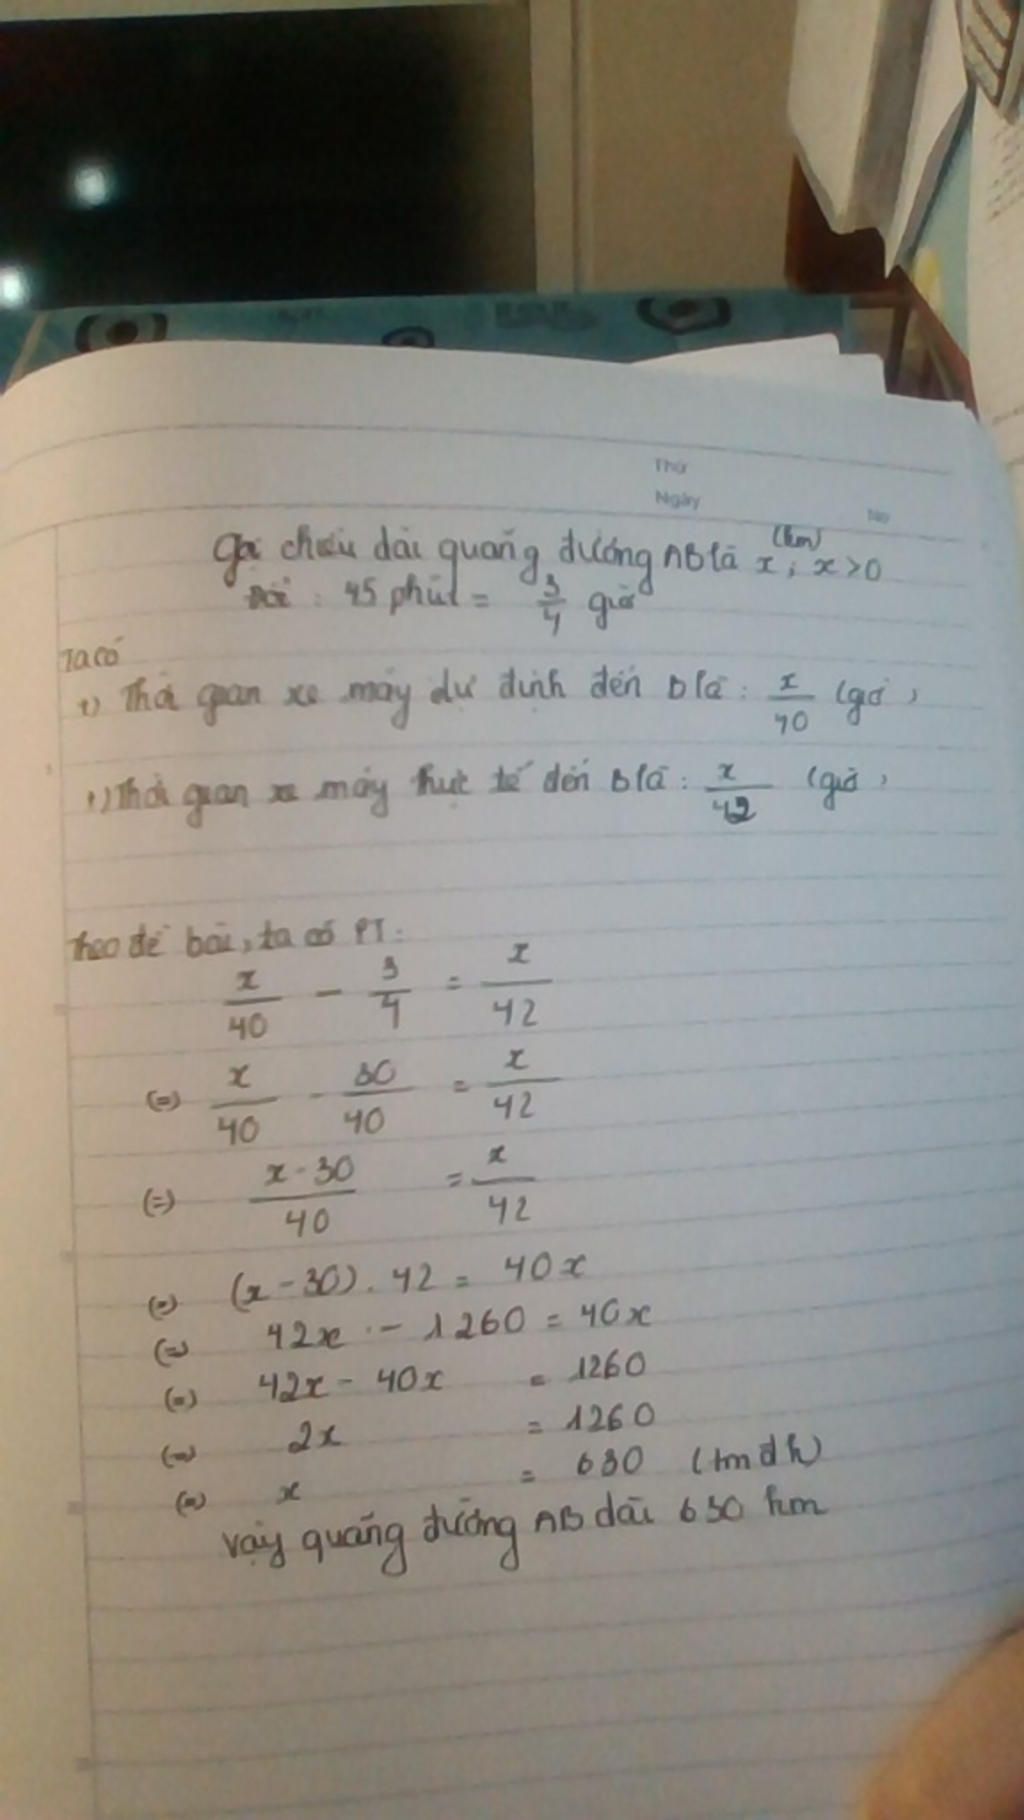 Thứ
Ngày
No
Gọi chiều dài quãng đường AB là x (km); x > 0
Đổi: 45 phút = 3/4 giờ
Ta có
+) Thời gian xe máy dự định đến B là: x/40 (giờ)
+) Thời gian xe máy thực tế đến B là: x/42 (giờ)
Theo đề bài, ta có PT:
x/40 - 3/4 = x/42
(=) x/40 - 30/40 = x/42
(=) x-30/40 = x/42
(=) (x-30).42 = 40x
(=) 42x - 1260 = 40x
(=) 42x - 40x = 1260
(=) 2x = 1260
(=) x = 630 (tmđk)
Vậy quãng đường AB dài 630 km